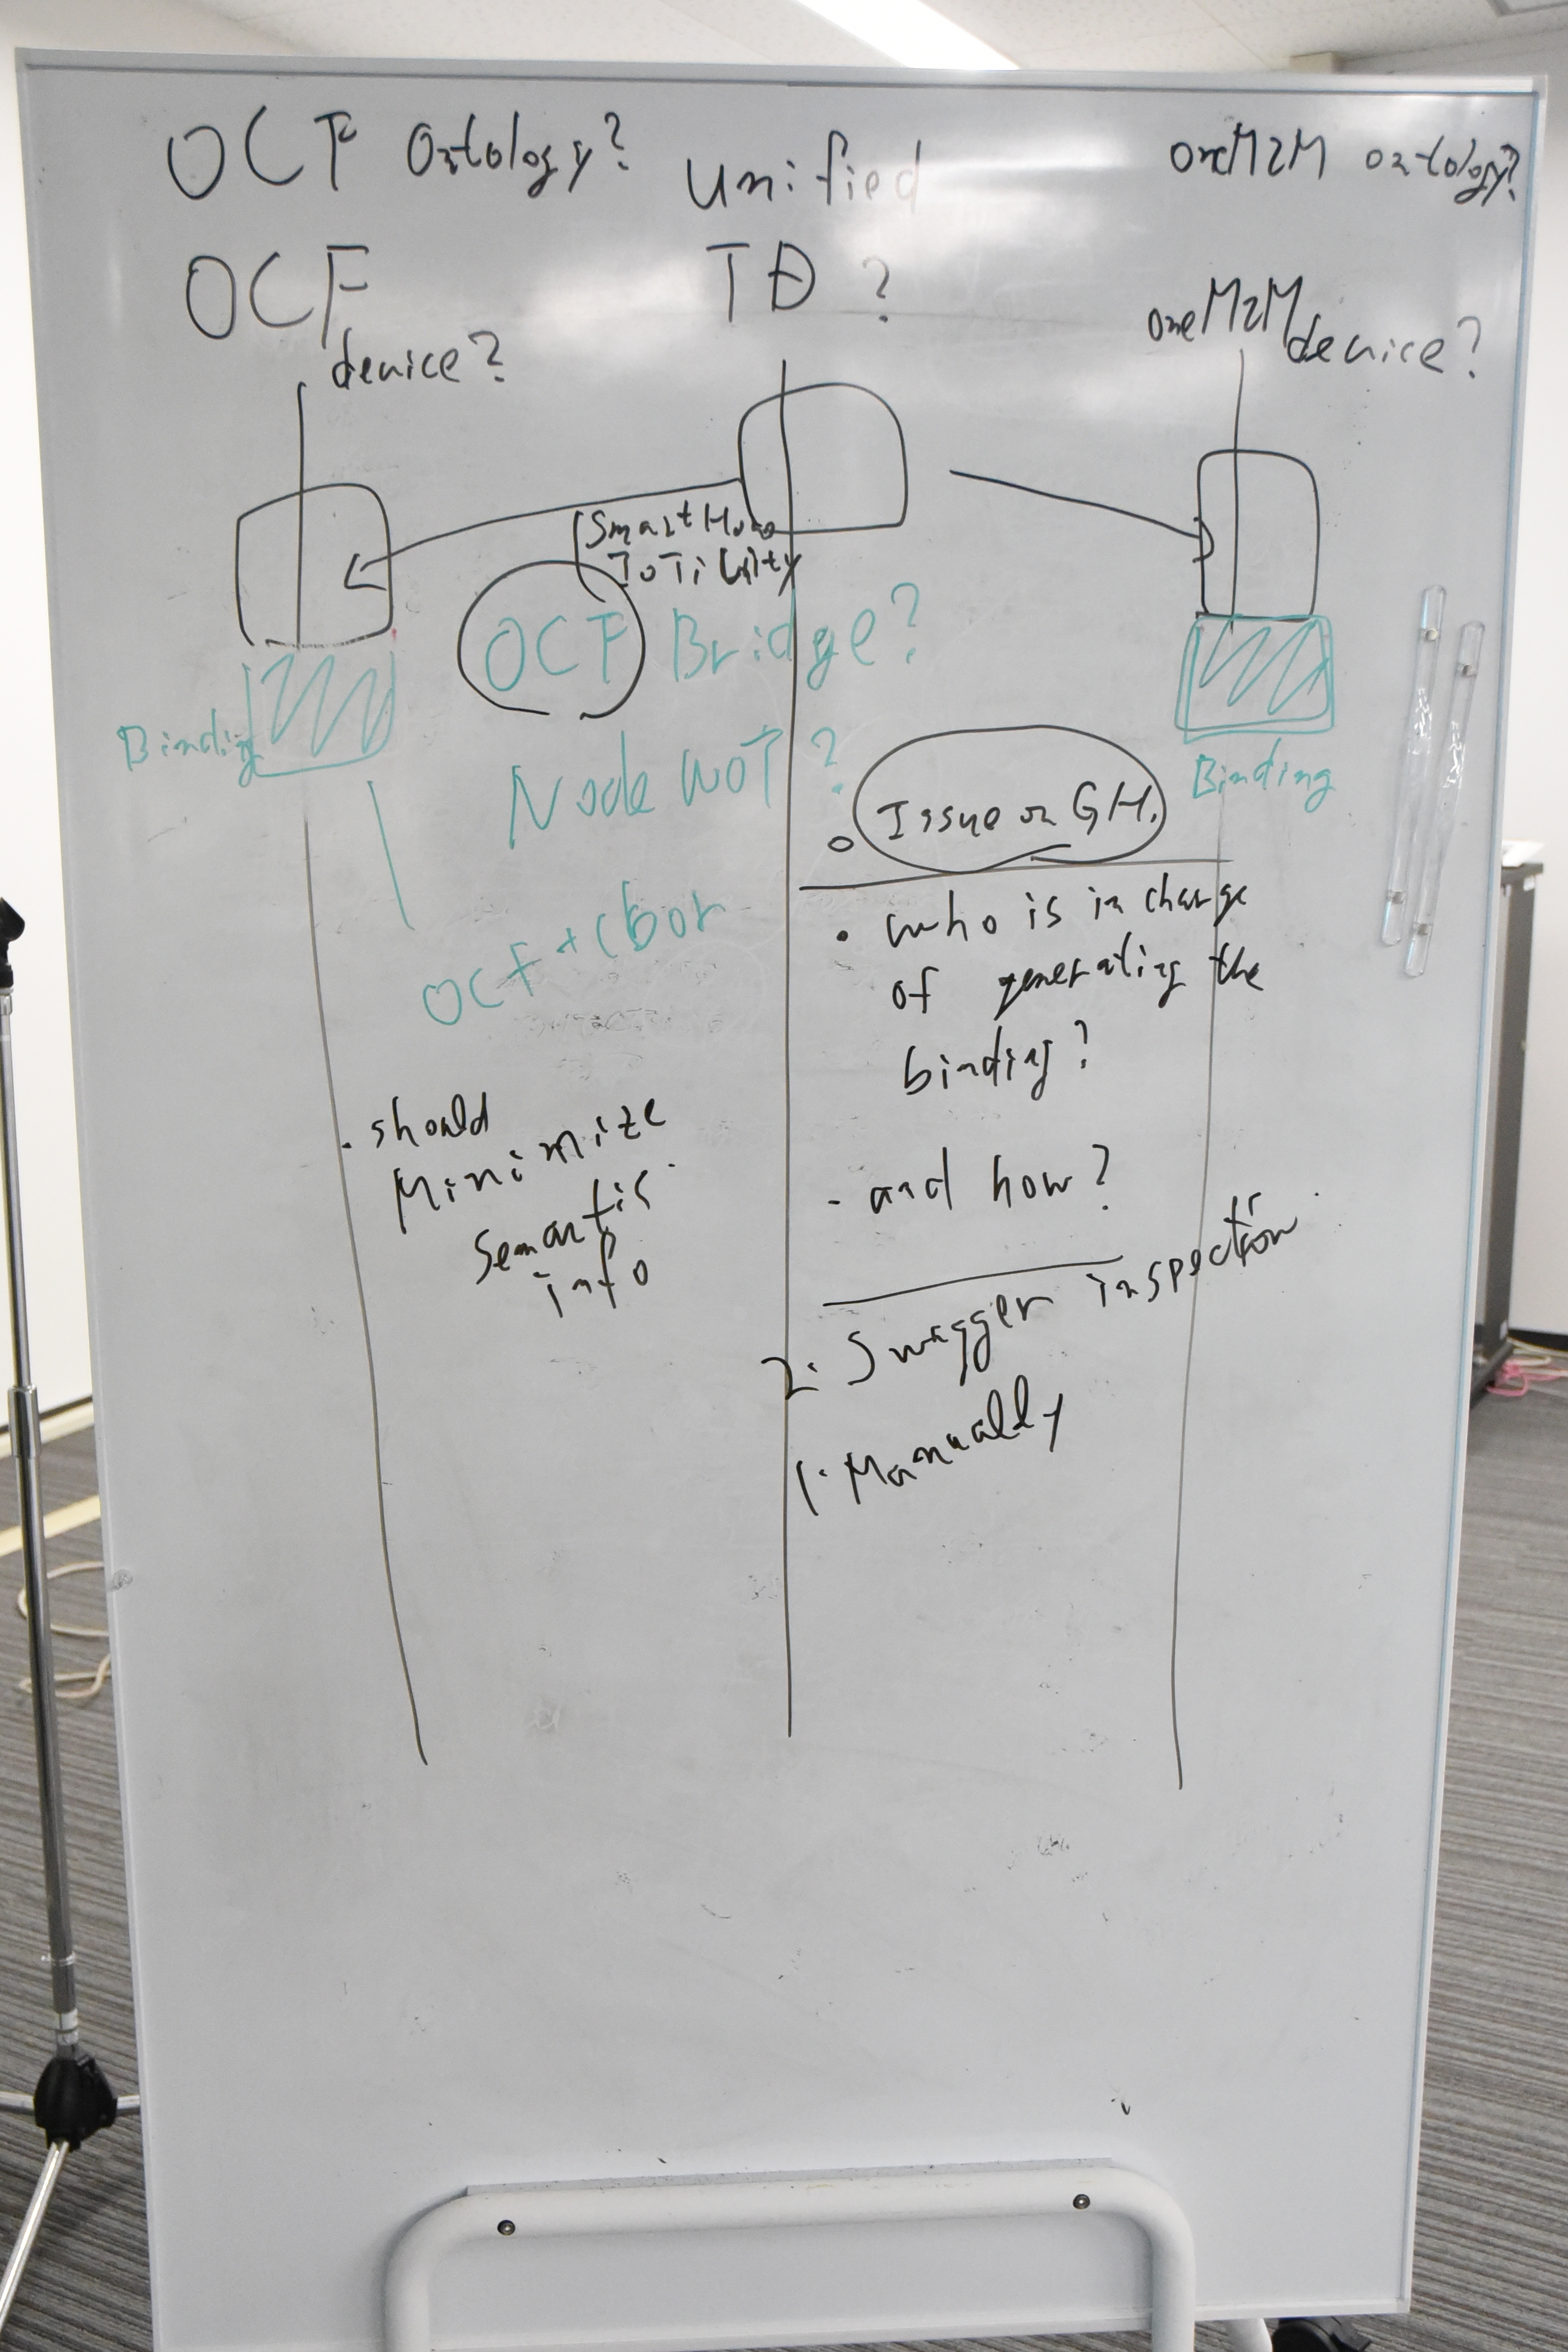 OCF Ontology?
unified
TD ?
oneM2M ontology?
OCF
device?
oneM2M
device?
Smart Home
IoTivity
OCF Bridge?
Binding
Node WOT ?
Binding
OCF + cbor
Issue on GH.
• who is in charge
of generating the
binding?
- and how?
. should
Minimize
Semantic
info
2. Swagger inspection
1. Manually